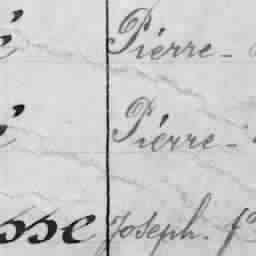 é Pierre-
é Pierre-
sse Joseph. f